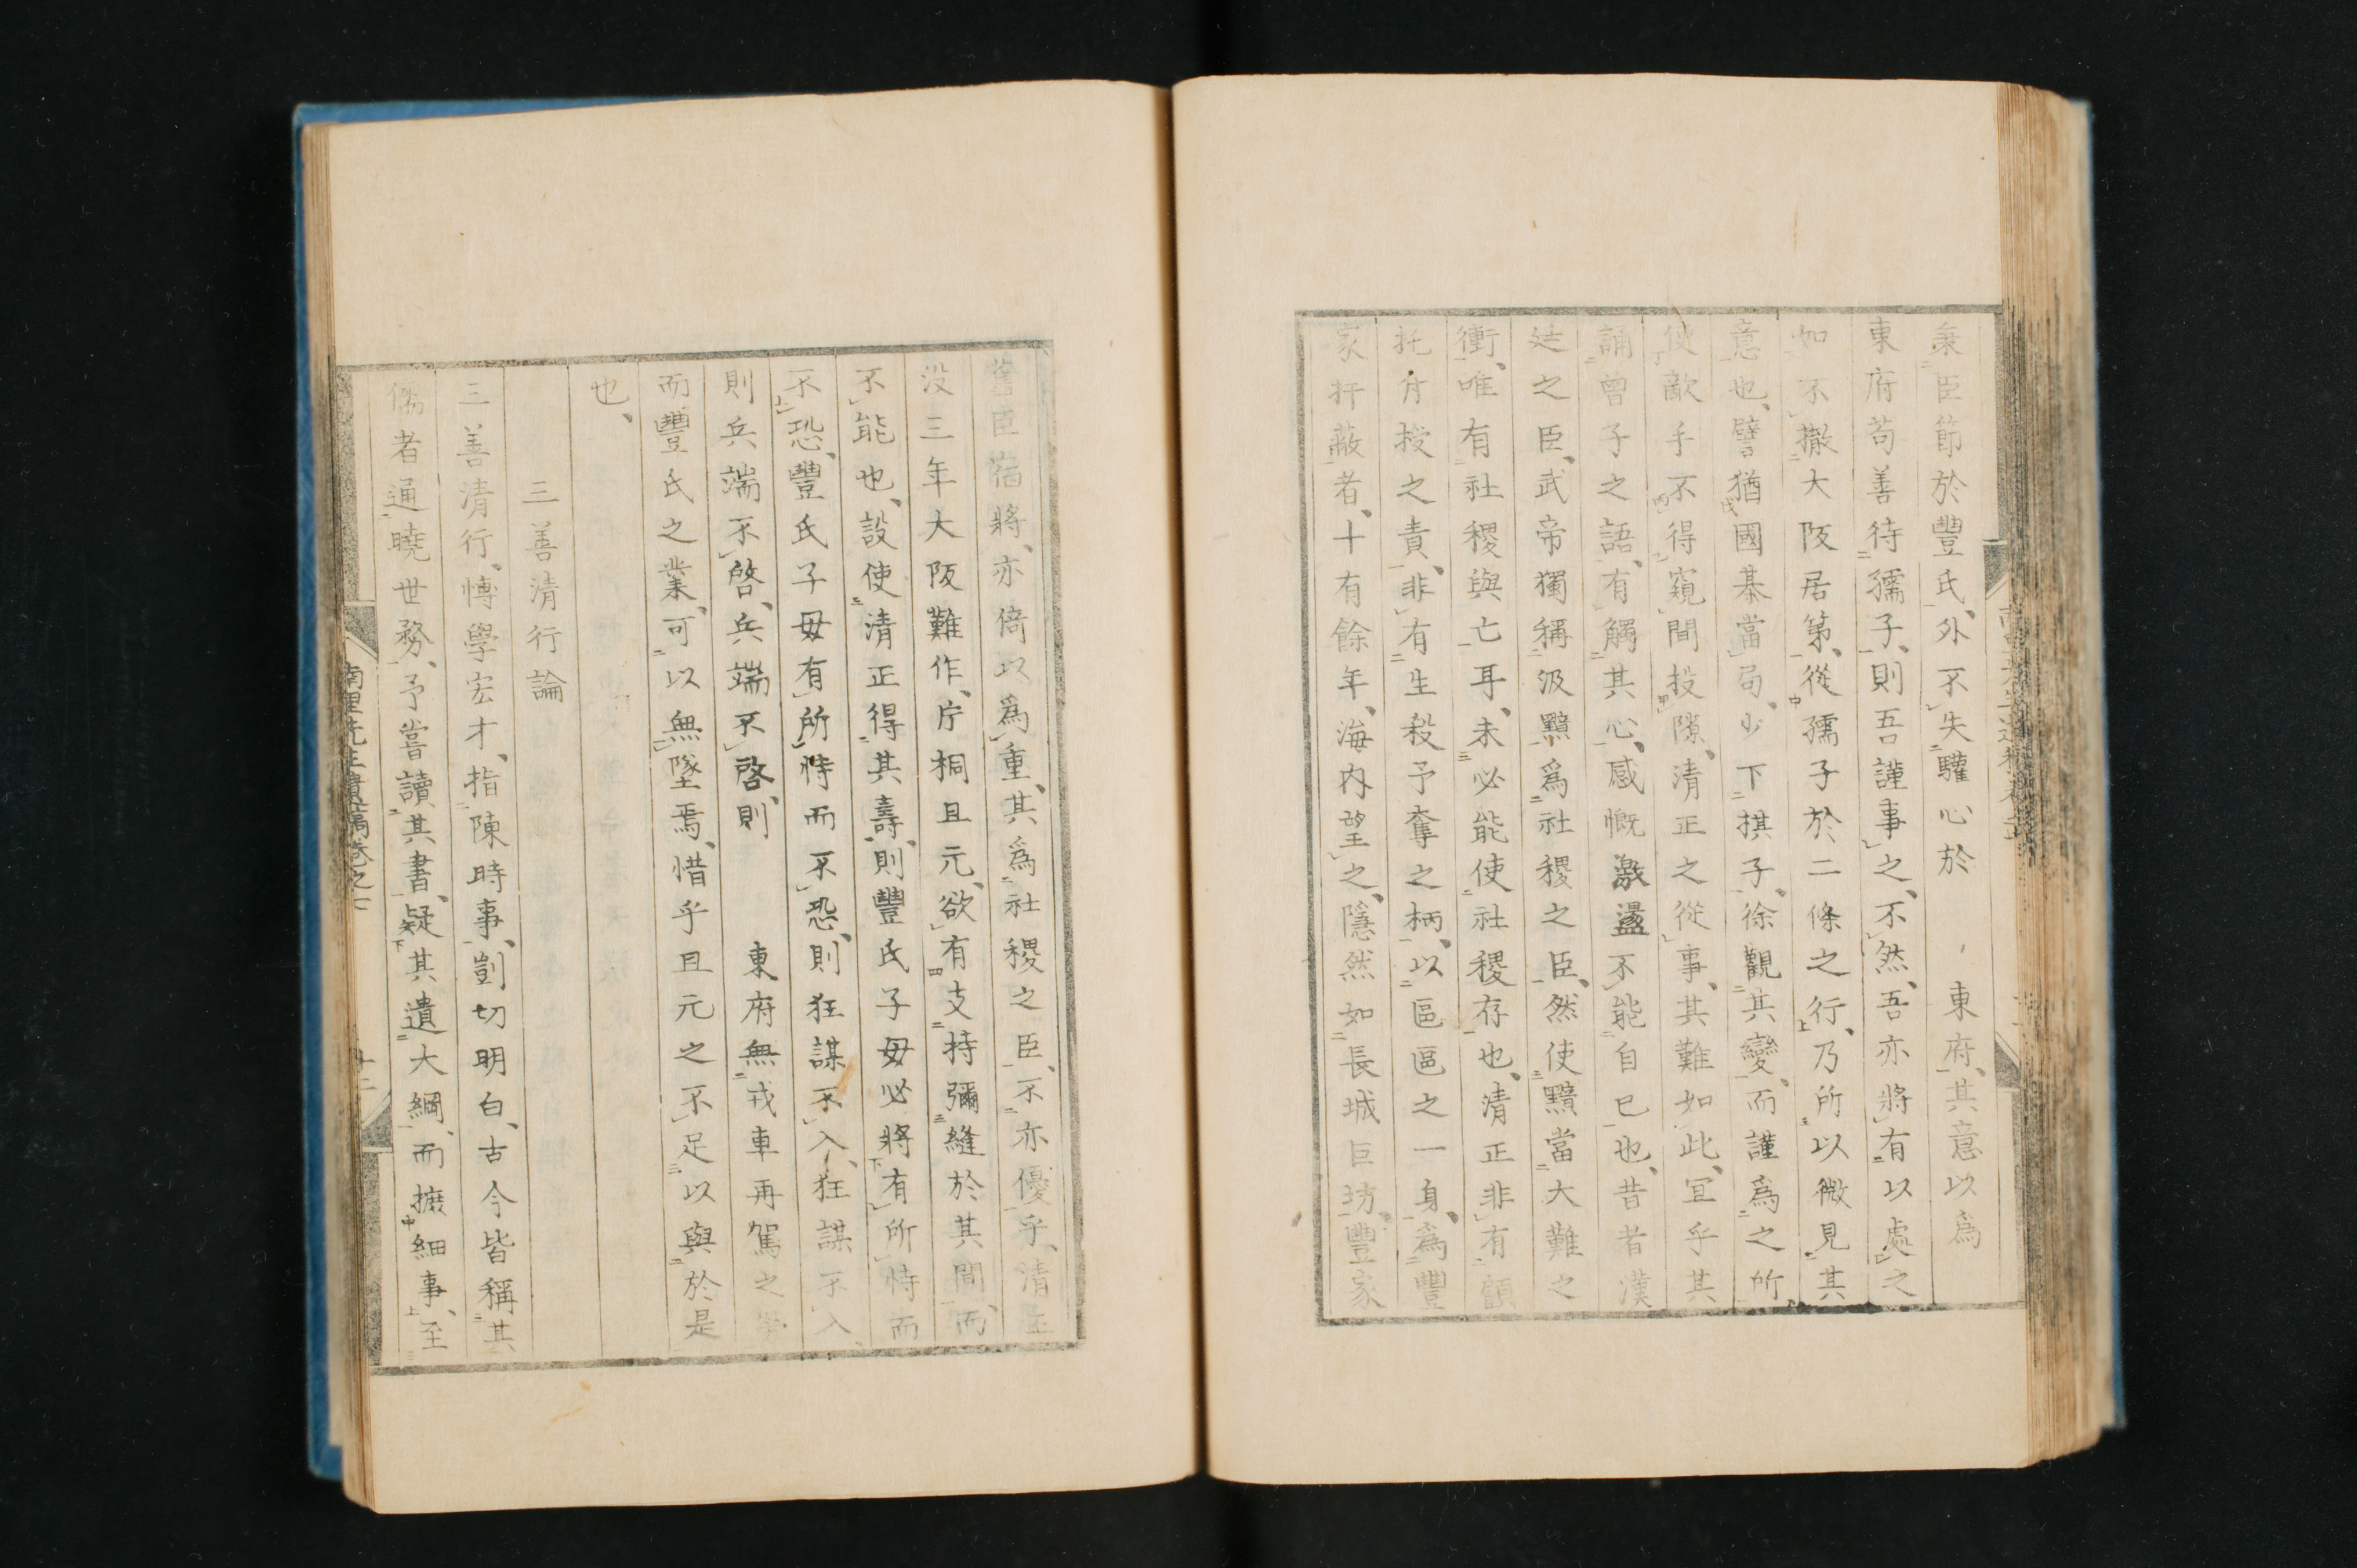 秉臣節於豐氏、外不失驩心於 東府、其意以爲
東府苟善待孺子、則吾謹事之、不然、吾亦將有以處之
如不撤大阪居第、從孺子於二條之行、乃所以微見其
意也、譬猶國棊當局、少下棋子、徐觀其變、而謹爲之所
使敵手不得窺間投隙、清正之從事、其難如此、宜乎其
誦曾子之語、有觸其心、感慨激盪不能自已也、昔者漢
廷之臣、武帝獨稱汲黯爲社稷之臣、然使黯當大難之
衝、唯有社稷與亡耳、未必能使社稷存也、清正非有顧
托斧授之責、非有生殺予奪之柄、以區區之一身、爲豐
家扞蔽者、十有餘年、海内望之、隱然如長城巨坊、豐家
舊臣宿將、亦倚以爲重、其爲社稷之臣、不亦優乎、清正
没三年大阪難作、片桐且元、欲有支持彌縫於其間、而
不能也、設使清正得其壽、則豐氏子毋必將有所恃而
不恐、豐氏子毋有所恃而不恐、則狂謀不入、狂謀不入、
則兵端不啓、兵端不啓、則 東府無戎車再駕之勞
而豐氏之業、可以無墜焉、惜乎且元之不足以與於是
也、
三善清行論
三善清行、博學宏才、指陳時事、剴切明白、古今皆稱其
儒者通曉世務、予嘗讀其書、疑其遺大綱、而摭細事、至
南里先生遺稿卷之七